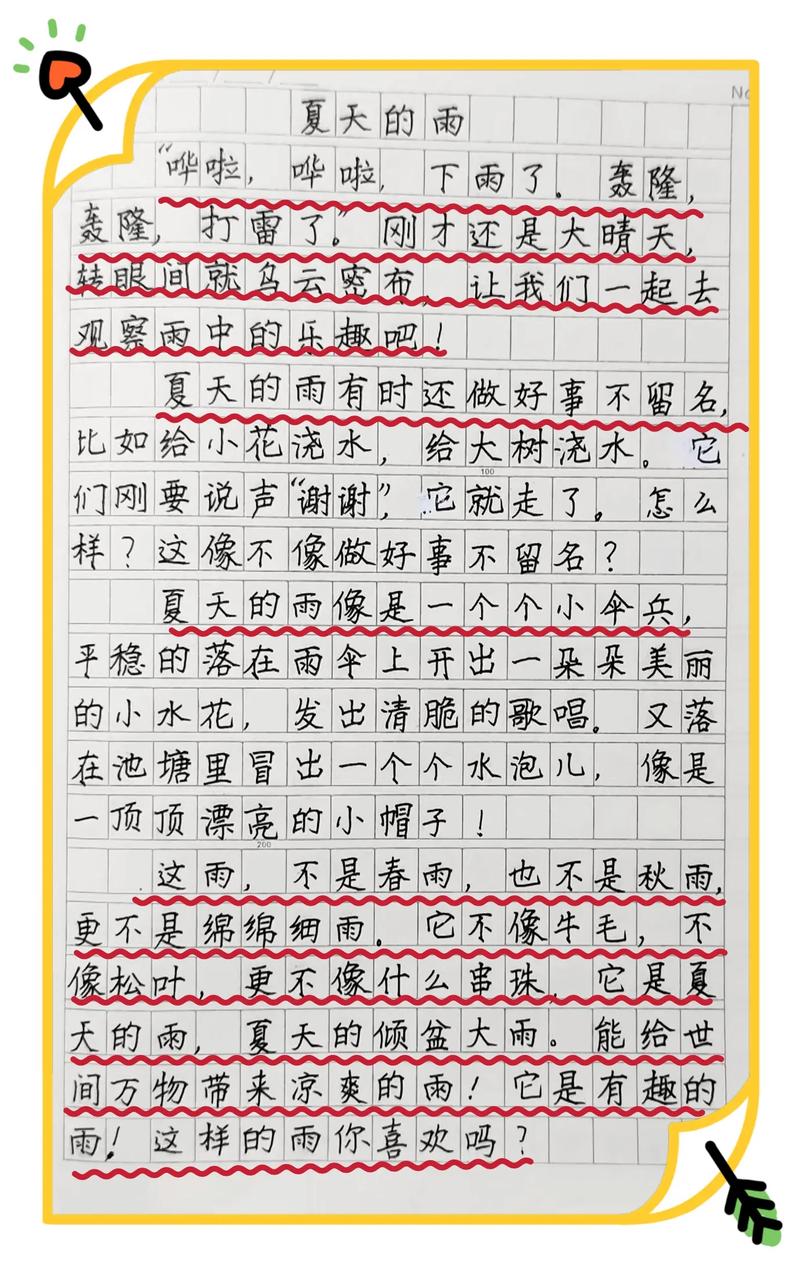 No
夏天的雨
“哗啦，哗啦，下雨了。轰隆，
轰隆，打雷了。”刚才还是大晴天，
转眼间就乌云密布，让我们一起去
观察雨中的乐趣吧！
夏天的雨有时还做好事不留名，
比如给小花浇水，给大树浇水。它
100
们刚要说声“谢谢”，它就走了。怎么
样？这像不像做好事不留名？
夏天的雨像是一个个小伞兵，
平稳的落在雨伞上开出一朵朵美丽
的小水花，发出清脆的歌唱。又落
在池塘里冒出一个个水泡儿，像是
一顶顶漂亮的小帽子！
200
这雨，不是春雨，也不是秋雨，
更不是绵绵细雨。它不像牛毛，不
像松叶，更不像什么串珠，它是夏
天的雨，夏天的倾盆大雨。能给世
间万物带来凉爽的雨！它是有趣的
雨！这样的雨你喜欢吗？